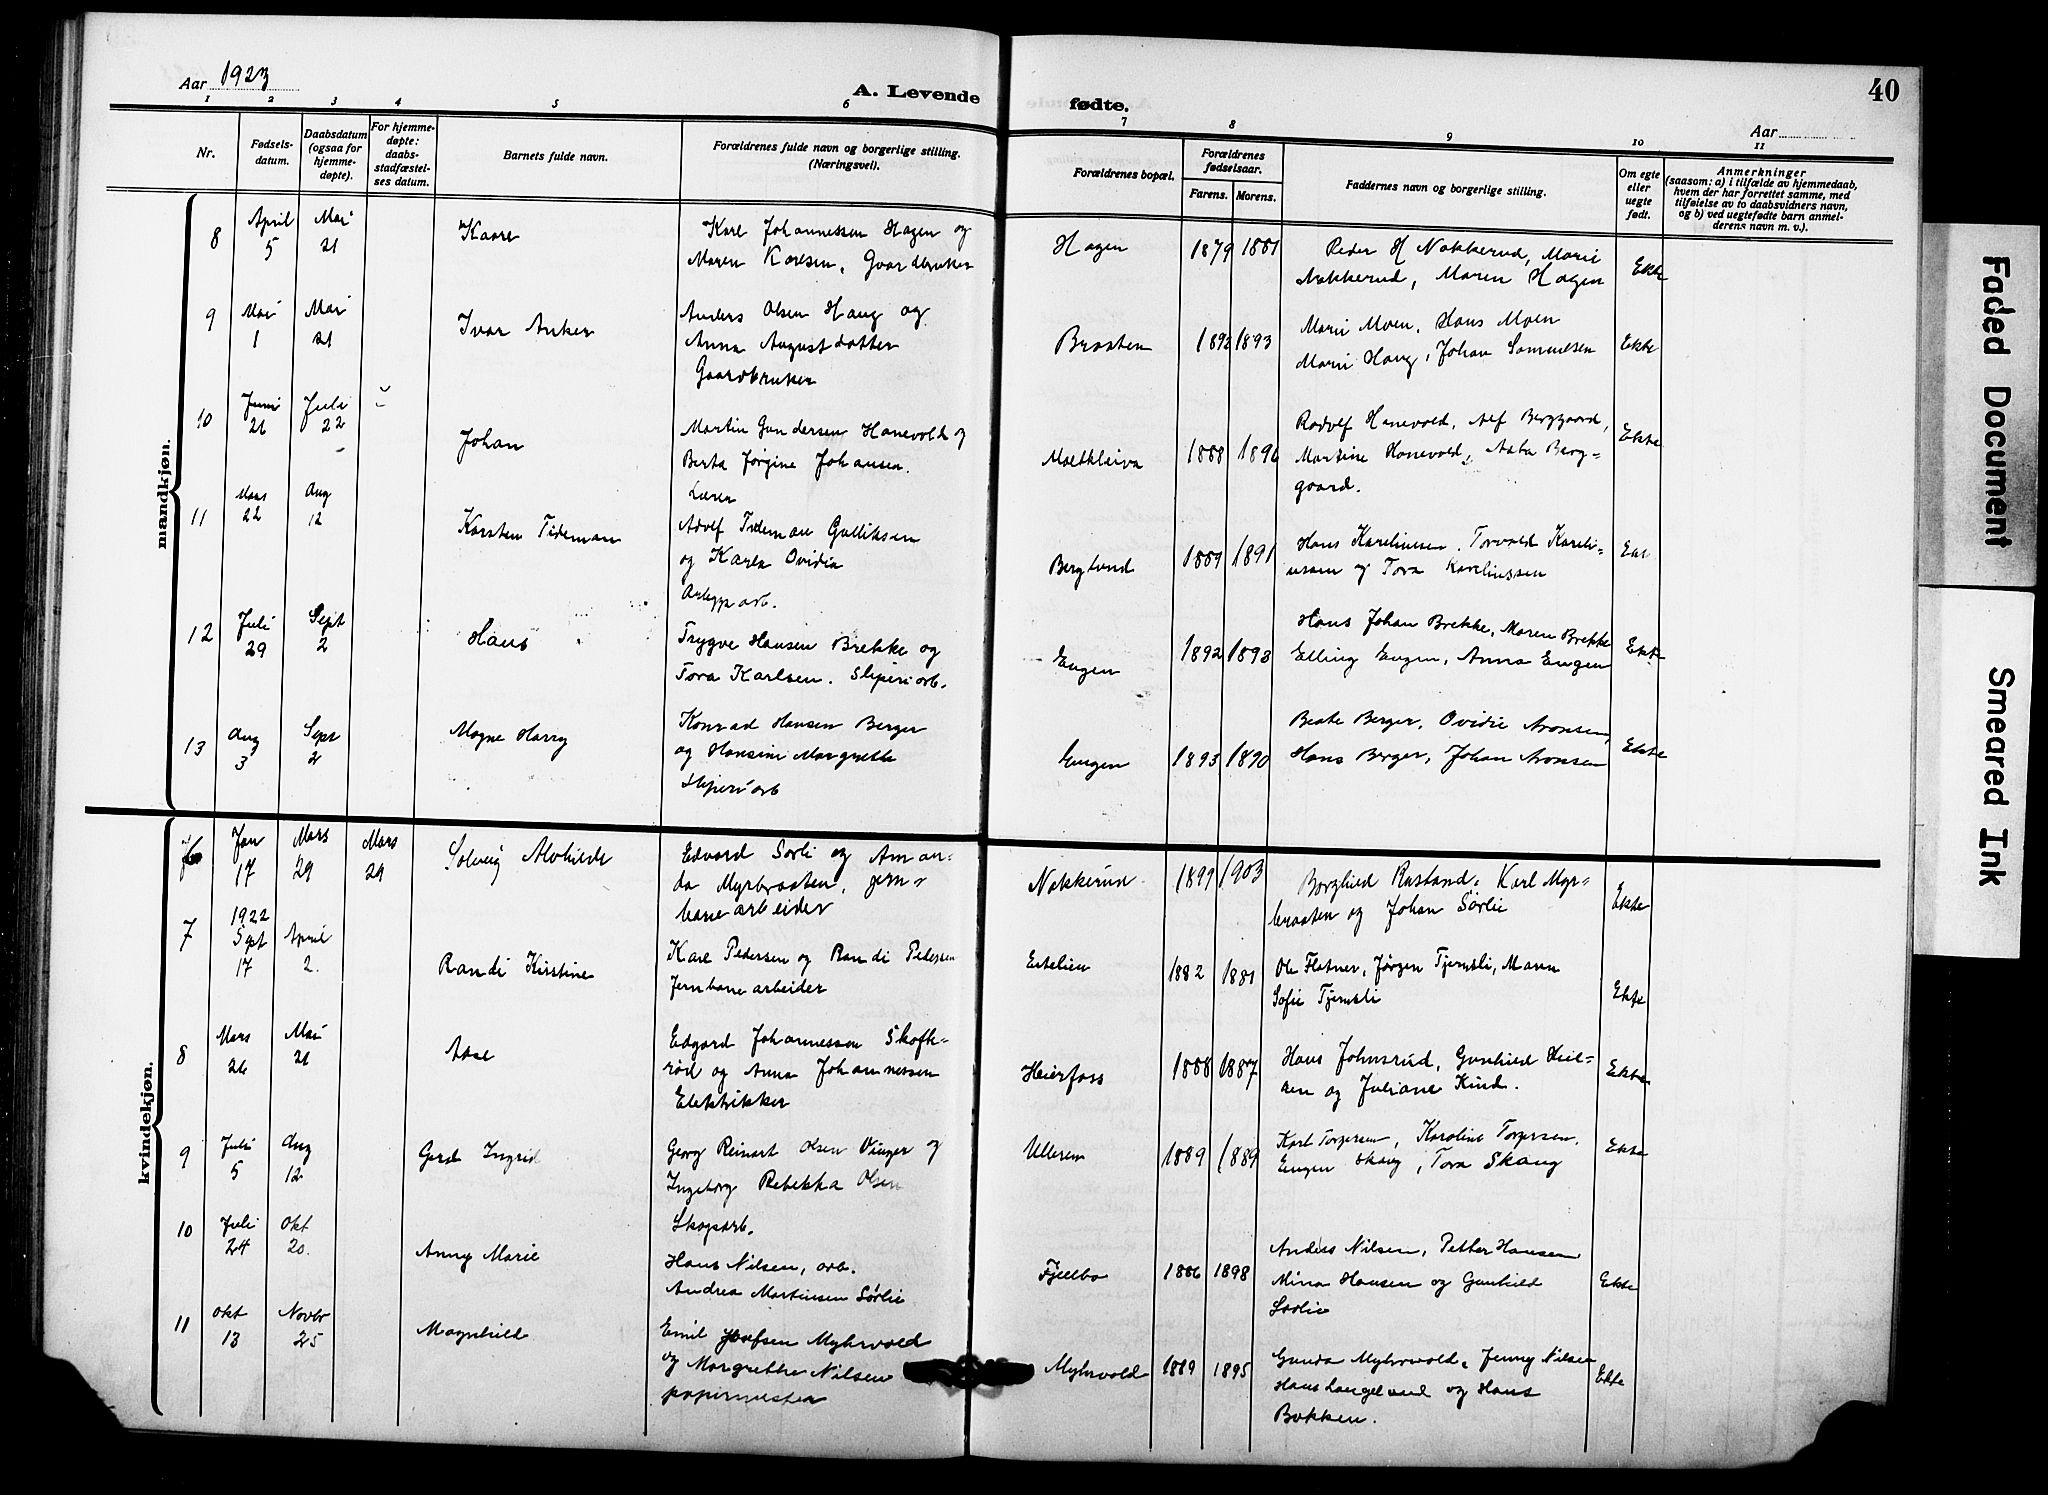 Aar 1923
A. Levende
fødte.
40
Aar
1 2 3 4 5 6 7 8 9 10 11
Nr.
Fødsels-
datum.
Daabsdatum
(ogsaa for
hjemme-
døpte).
For hjemme-
døpte:
daabs-
stadfæstel-
ses datum.
Barnets fulde navn.
Forældrenes fulde navn og borgerlige stilling.
(Næringsvei).
Forældrenes bopæl.
Forældrenes
fødselsaar.
Farens. Morens.
Faddernes navn og borgerlige stilling.
Om egte
eller
uegte
født.
Anmerkninger
(saasom: a) i tilfælde av hjemmedaab,
hvem der har forrettet samme, med
tilføielse av to daabsvidners navn,
og b) ved uegtefødte barn anmel-
derens navn m. v.).
mandkjøn.
8 April 5 Mai 21 Kaare
Karl Johannessen Hagen og
Maren Karlsen, Gaardbruker
Hagen 1879 1881
Peder H Nakkerud, Marie
Nakkerud, Maren Hagen
Ekte
9 Mai 1 Mai 21 Ivar Anker
Anders Olsen Haug og
Anna Augustdatter
Gaardbruker
Braaten 1892 1893
Marie Moen, Hans Moen
Marie Haug, Johan Samuelsen
Ekte
10 Juni 21 Juli 22 Johan
Martin Gundersen Hanevold og
Berta Jørgine Johansen.
Lærer
1888 1896
Radolf Hanevold, Alf Berggaard,
Martine Hanevold, Aasta Berg-
gaard.
Ekte
11 Mars 22 Aug 12 Karsten Tideman
Adolf Tideman Gulliksen
og Karla Ovidia
Berglund 1889 1891
Hans Kareliussen, Torvald Kareli-
ussen og Tora Kareliussen
Ekt
12 Juli 29 Sept 2 Hans
Trygve Hansen Brekke og
Tora Karlsen. Sliperiarb.
Engen 1892 1893
Hans Johan Brekke, Maren Brekke
Elling Engen, Anna Engen
Ekte
13 Aug 3 Sept 2 Magne Harry
Konrad Hansen Berger
og Hansine Margrethe
Sliperiarb
Engen 1893 1890
Beate Berger, Ovidie Aronsen,
Hans Berger, Johan Aronsen
Ekte
kvindekjøn.
6 Jan 17 Mars 29 Mars 29 Solveig Alvhilde
Edvard Sørli og Aman-
da Myrbraaten, jern-
banearbeider
Nakkerud 1899 1903
Borghild Rustand, Karl Myr-
braaten og Johan Sørlie
Ekte
7 1922 Sept 17 April 2. Randi Kirstine
Karl Pedersen og Randi Pedersen
Jernbanearbeider
1882 1881
Ole Flatner, Jørgen Tjernsli, Maren
Sofie Tjernsli
Ekte
8 Mars 26 Mai 21 Aase
Edgard Johannessen Skofte-
rød og Anna Johannessen
Elektrikker
Heierfoss 1888 1887
Hans Johnsrud, Gunhild Niel-
sen og Juliane Kind.
Ekte
9 Juli 5 Aug 12 Gerd Ingrid
Georg Reinart Olsen Vinger og
Ingeborg Rebekka Olsen
Skogsarb.
Ullerem 1889 1889
Karl Torgersen, Karoline Torgersen.
Engen Skaug, Tora Skaug
Ekte
10 Juli 24 Okt 20. Anny Marie
Hans Nilsen, arb.
Andrea Martinsen Sørlie
Fjellbo 1886 1898
Anders Nilsen, Petter Hansen
Mina Hansen og Gunhild
Sørlie
Ekte
11 Okt 13 Novbr 25 Magnhild
Emil Josefsen Myhrvold
og Margrethe Nilsen
papirmester
Myhrvold 1889 1895
Gunda Myhrvold, Jenny Nilsen
Hans Langelund og Hans
Bakken.
Ekte
Faded Document
Smeared Ink